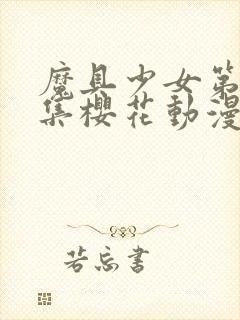 魔具少女第
集櫻花動漫
若忘書